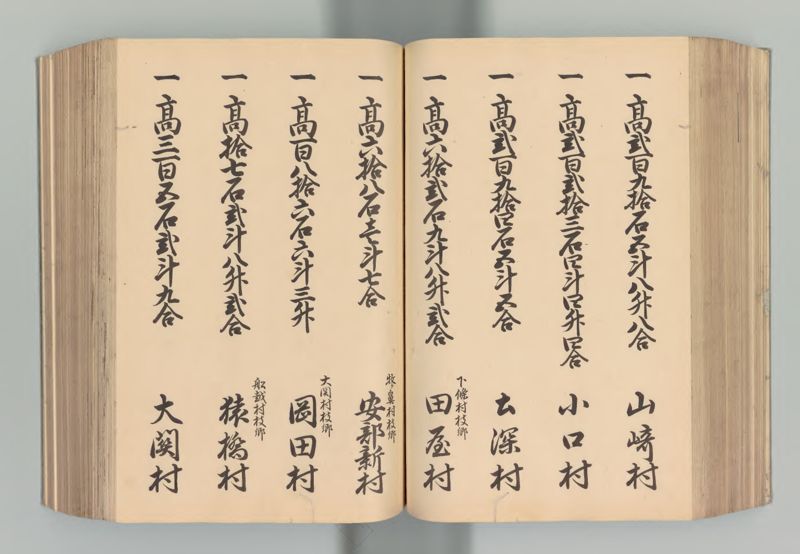 一高弐百九拾石五斗八升八合 山﨑村
一高弐百弐拾三石四斗四升四合 小口村
一高弐百九拾四石五斗五合 土深村
下條村枝郷
一高六拾弐石九斗八升弐合 田屋村
牧鼻村枝郷
一高六拾八石壱斗七合 安部新村
大関村枝郷
一高百八拾六石六斗三升 岡田村
船越村枝郷
一高拾七石弐斗八升弐合 猿橋村
一高三百五石弐斗九合 大関村